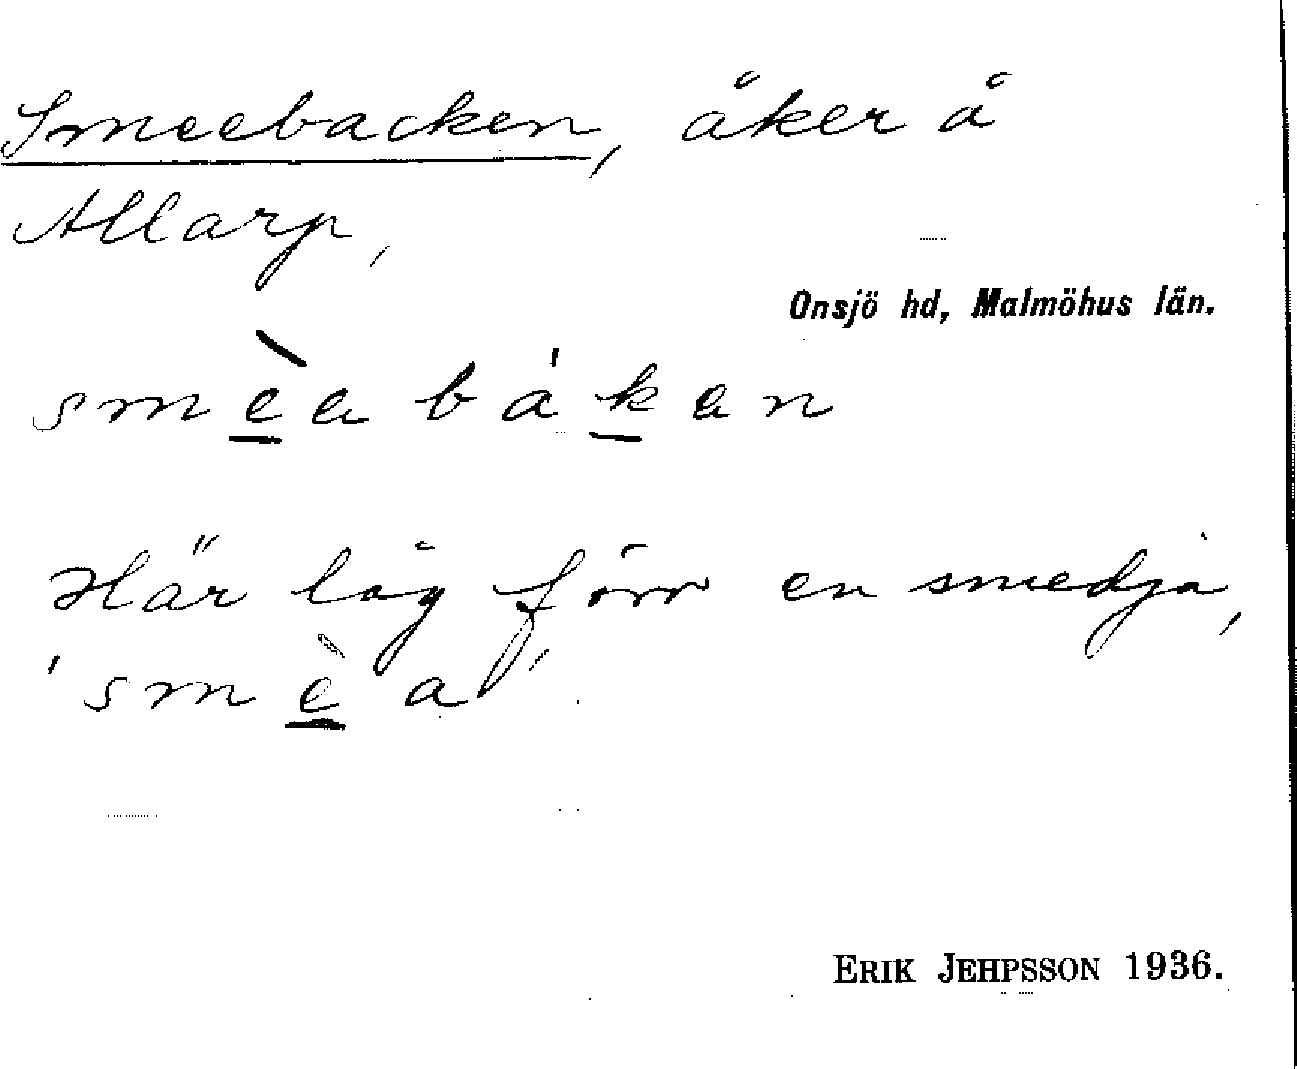 Smeebacken, åker å
Allarp,
Onsjö hd, Malmöhus län.
smèa bákan
Här låg förr en smedja,
'smèa'.
ERIK JEHPSSON 1936.